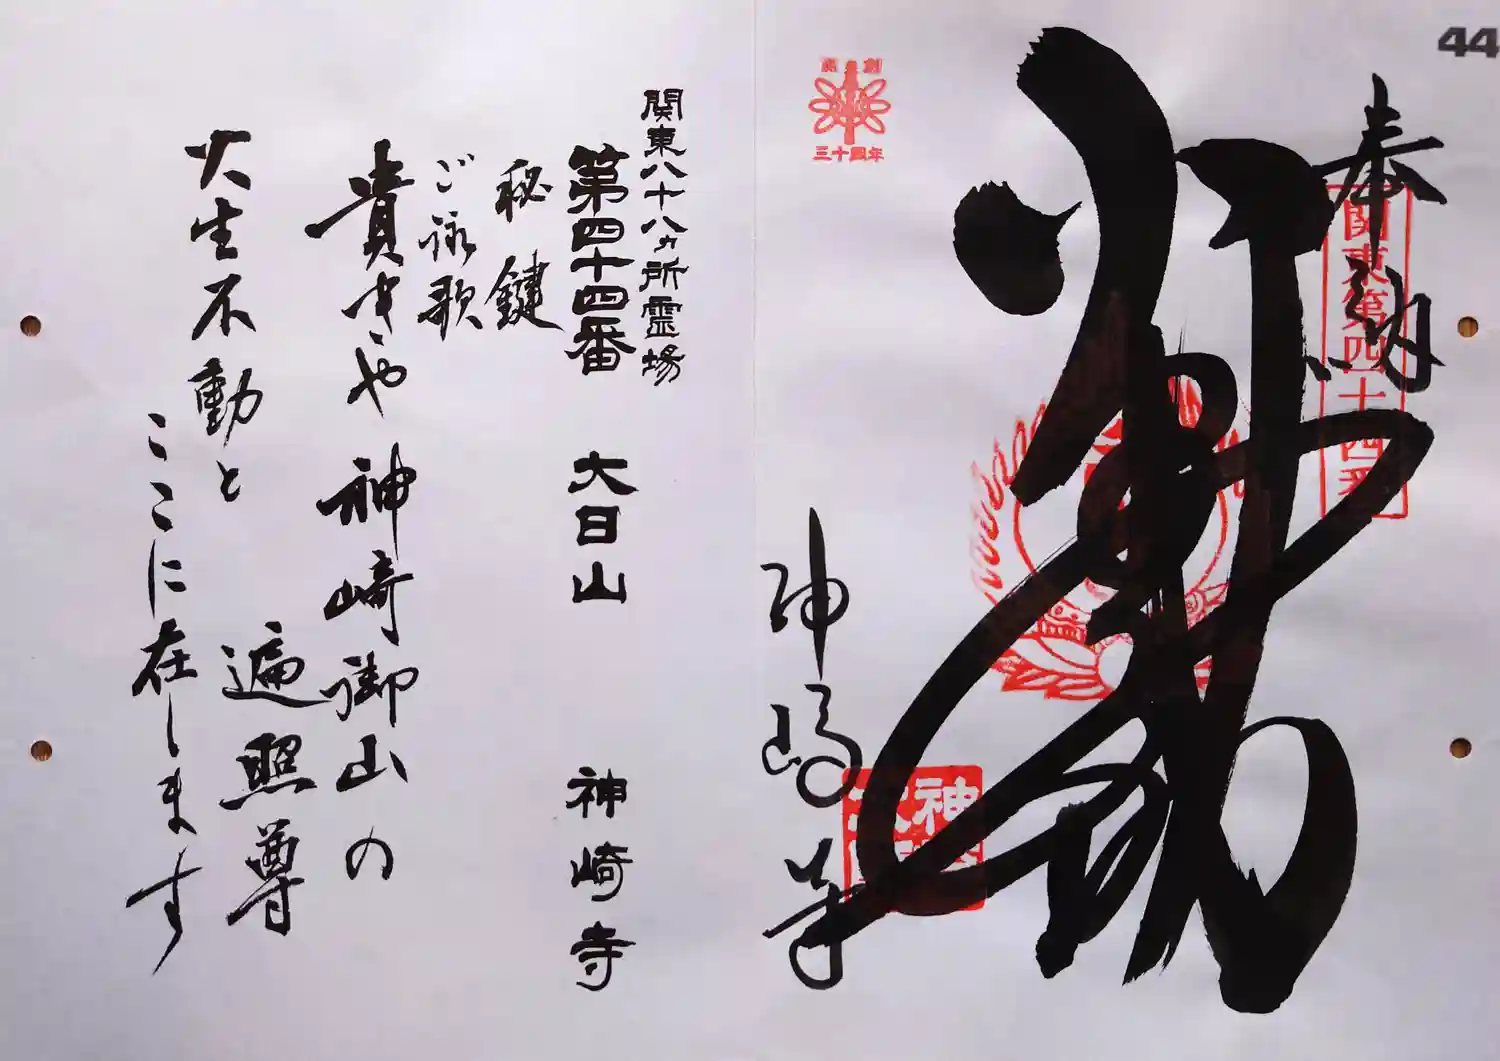 44
奉納
関東第四十四番
開創
三十周年
神崎寺
関東八十八ヵ所霊場
第四十四番 大日山 神崎寺
秘鍵
ご詠歌
貴きや 神崎御山の
遍照尊
火生不動と
ここに在します